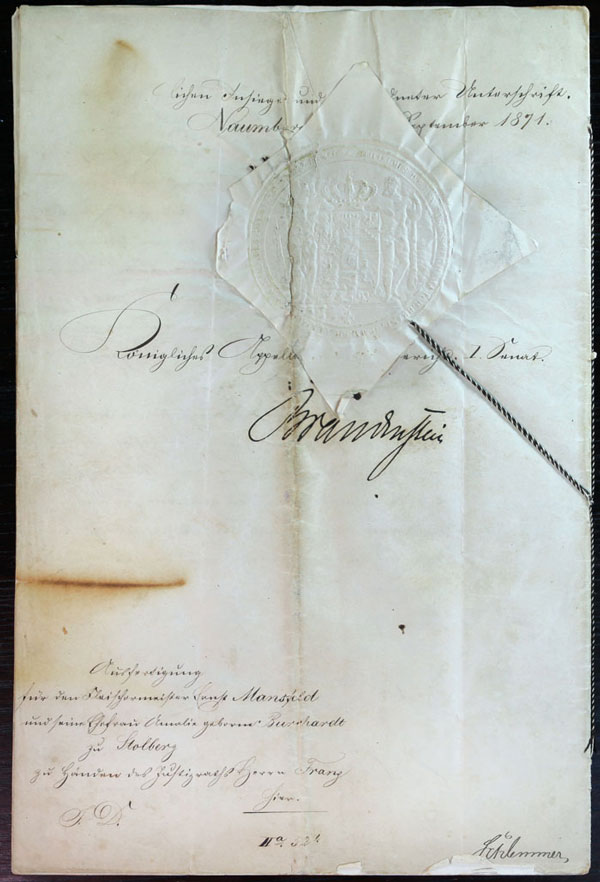 lichen Insiege und ordneter Unterschrift.
Naumbur September 1871.
Königliches Appell gericht. I. Senat.
Brandenstein
Ausfertigung
für den Fleischermeister Ernst Mansfeld
und seine Ehefrau Amalie geborne Burchardt
zu Stolberg
zu Händen des Justizraths Herrn Franz
hier.
IIa 52
Schlemmer